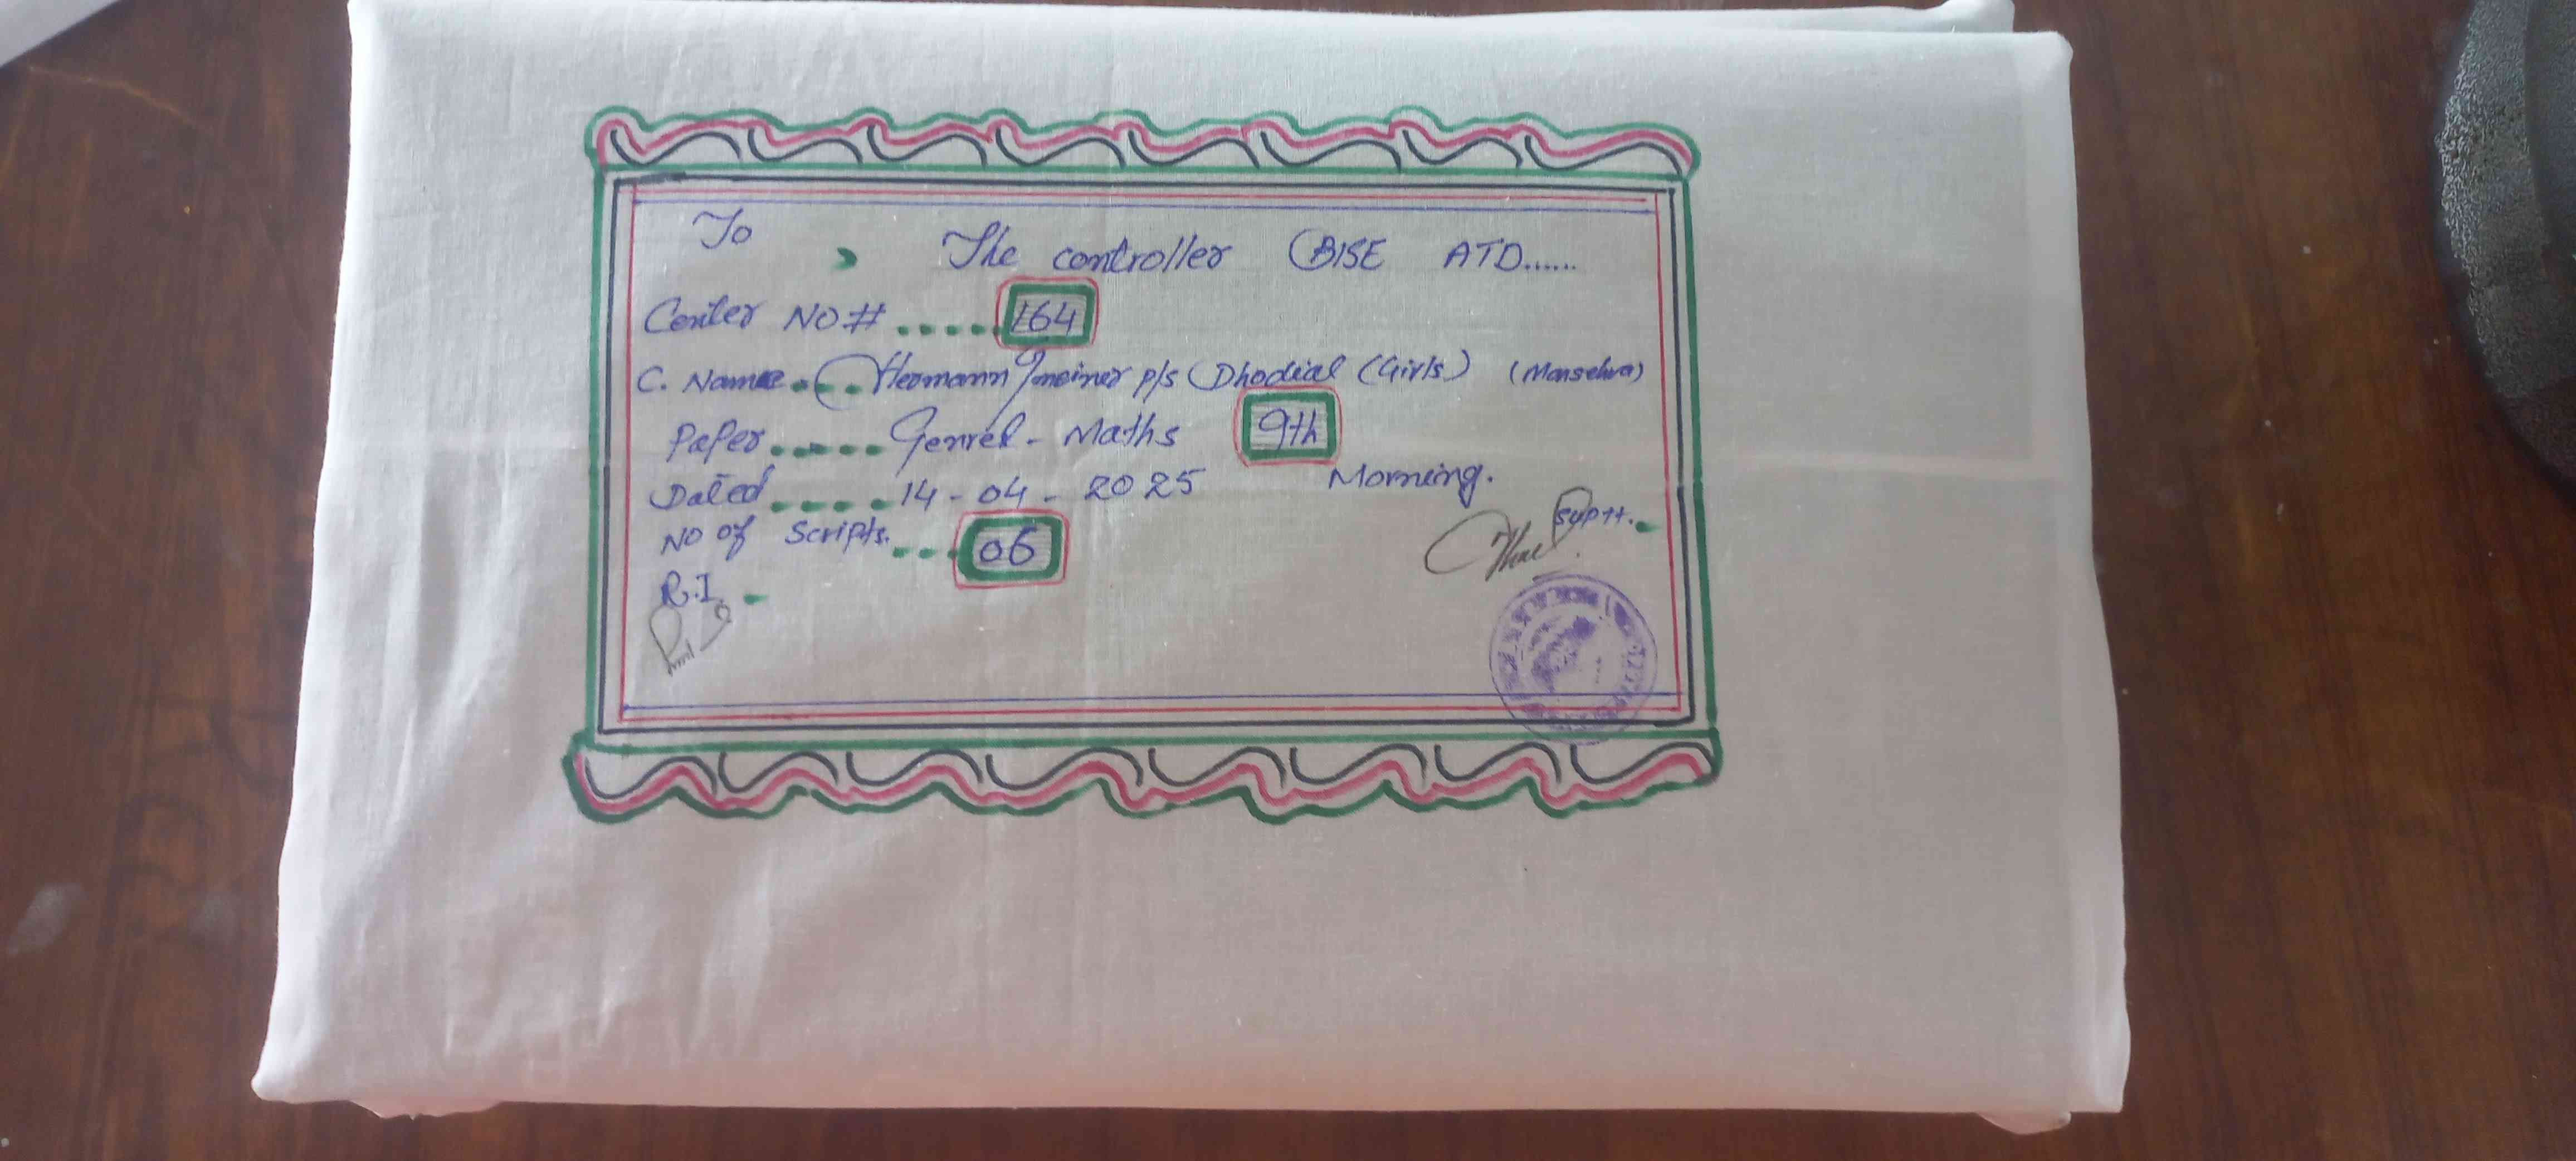 To
The controller BISE ATD......
Center NO # ..... 164
C. Name.... Hermann Gmeiner p/s Dhodial (Girls) (Mansehra)
Paper..... Genrel - Maths 9th
Dated.....14 - 04 - 2025 Morning.
NO of Scripts.... 06
Suptt.
R.I.